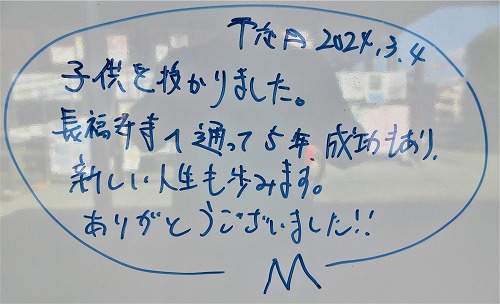 2024.3.4
子供を授かりました。
長福寿寺へ通って5年.成功もあり、
新しい人生も歩みます。
ありがとうございました!!
M